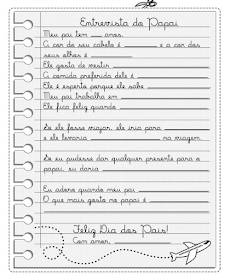 Entrevista do Papai
Meu pai tem ___ anos.
A cor do seu cabelo é ________ e a cor dos
seus olhos é ________
Ele gosta de vestir ________
A comida preferida dele é ________
Ele é esperto porque ele sabe ________
Meu pai trabalha em ________
Ele fica feliz quando ________
Se ele fosse viajar, ele iria para ________
e ele levaria ________ na viagem.
Se eu pudesse dar qualquer presente para o
papai, eu daria ________
Eu adoro quando meu pai ________
O que mais gosto no papai é ________
Feliz Dia dos Pais!
Com amor, ________